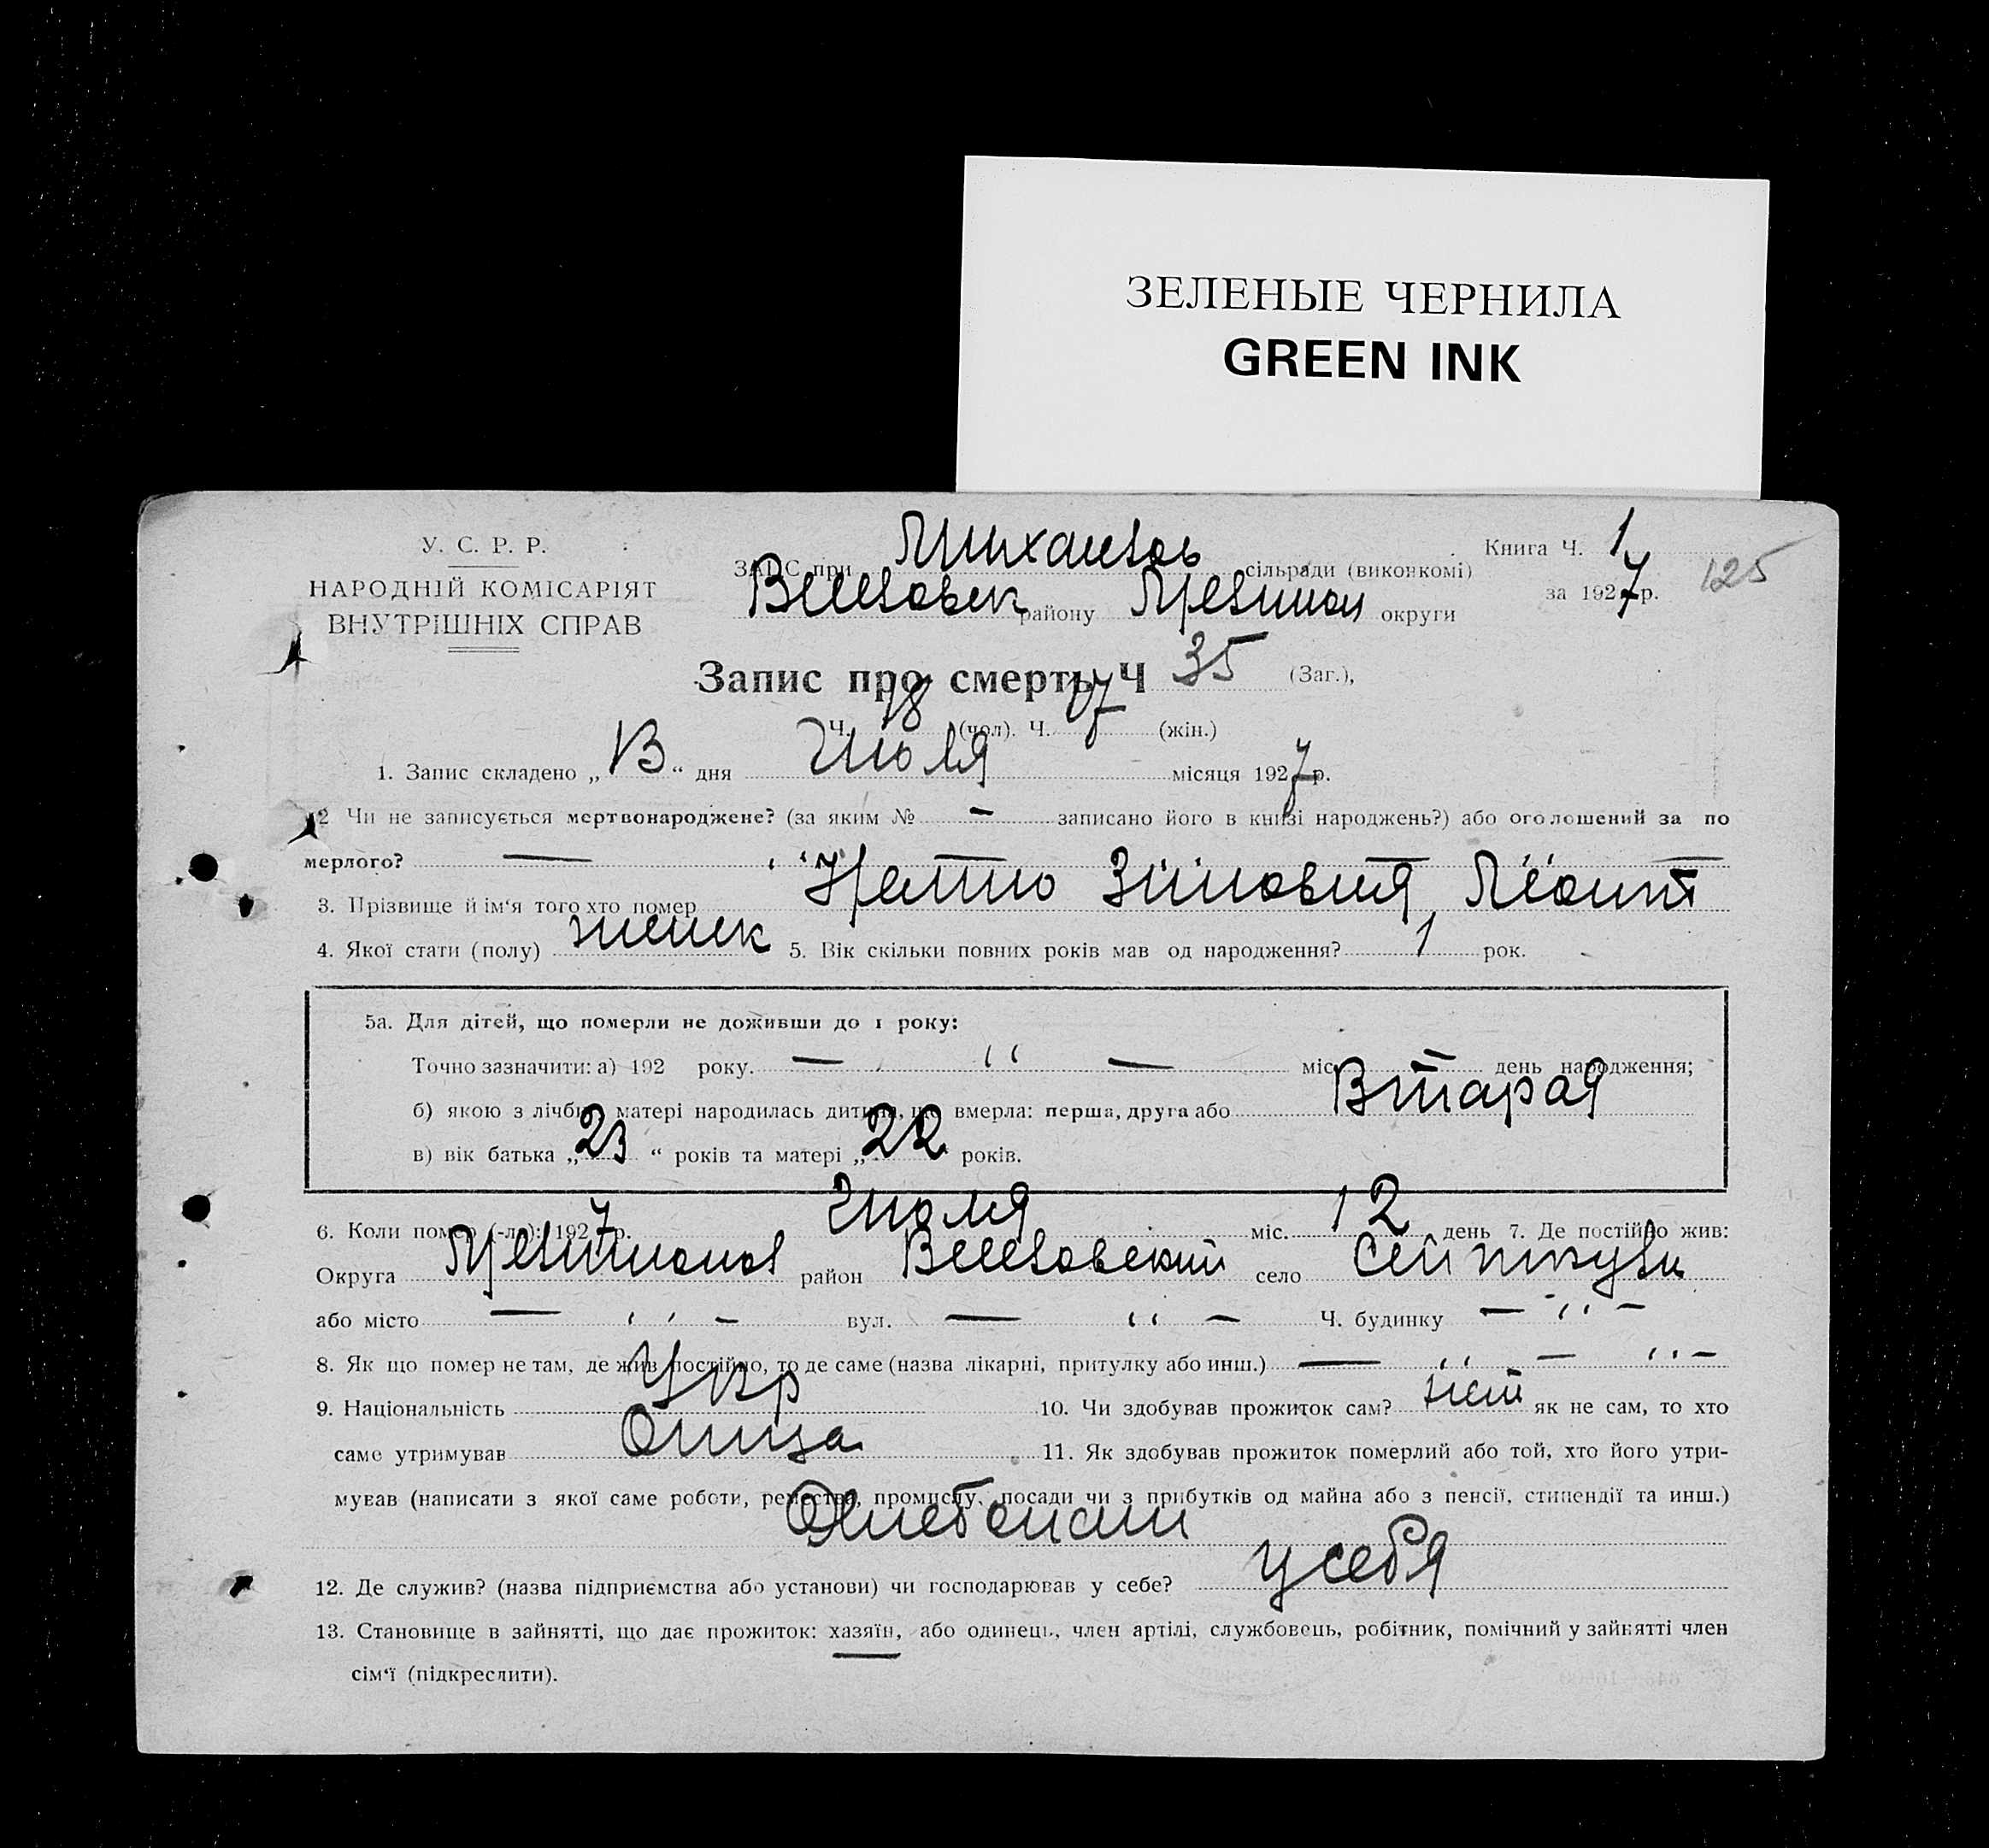 ЗЕЛЕНЫЕ ЧЕРНИЛА
GREEN INK
У. С. Р. Р.
НАРОДНІЙ КОМІСАРІЯТ
ВНУТРІШНІХ СПРАВ
ЗАПИС при сільради (виконкомі)
району округи
Книга Ч. 1
за 1927 р.
125
Запис про смерть Ч 35 (Заг.),
Ч. 18 (чол). Ч. 17 (жін.)
1. Запис складено „13“ дня Июля місяця 1927 р.
2 Чи не записується мертвонароджене? (за яким № — записано його в книзі народжень?) або оголошений за по
мерлого? —
3. Прізвище й ім‘я того хто помер
4. Якої стати (полу) женск 5. Вік скільки повних років мав од народження? 1 рок.
5а. Для дітей, що померли не доживши до 1 року:
Точно зазначити: а) 192 року. — „ — міс. — день народження;
б) якою з лічби у матері народилась дитина, що вмерла: перша, друга або Втарая
в) вік батька „23“ років та матері „22 років.
6. Коли помер (-ла): 1927 р. Июля міс. 12 день 7. Де постійно жив:
Округа район село
або місто — „ — вул. — „ — Ч. будинку — „ —
8. Як що помер не там, де жив постійно, то де саме (назва лікарні, притулку або инш.) — „ — „ —
9. Національність Укр 10. Чи здобував прожиток сам? нет як не сам, то хто
саме утримував Отца 11. Як здобував прожиток померлий або той, хто його утри-
мував (написати з якої саме роботи, ремества, промислу, посади чи з прибутків од майна або з пенсії, стипендії та инш.)
12. Де служив? (назва підприємства або установи) чи господарював у себе? у себя
13. Становище в зайнятті, що дає прожиток: хазяїн, або одинець, член артілі, службовець, робітник, помічний у зайнятті член
сім‘ї (підкреслити).